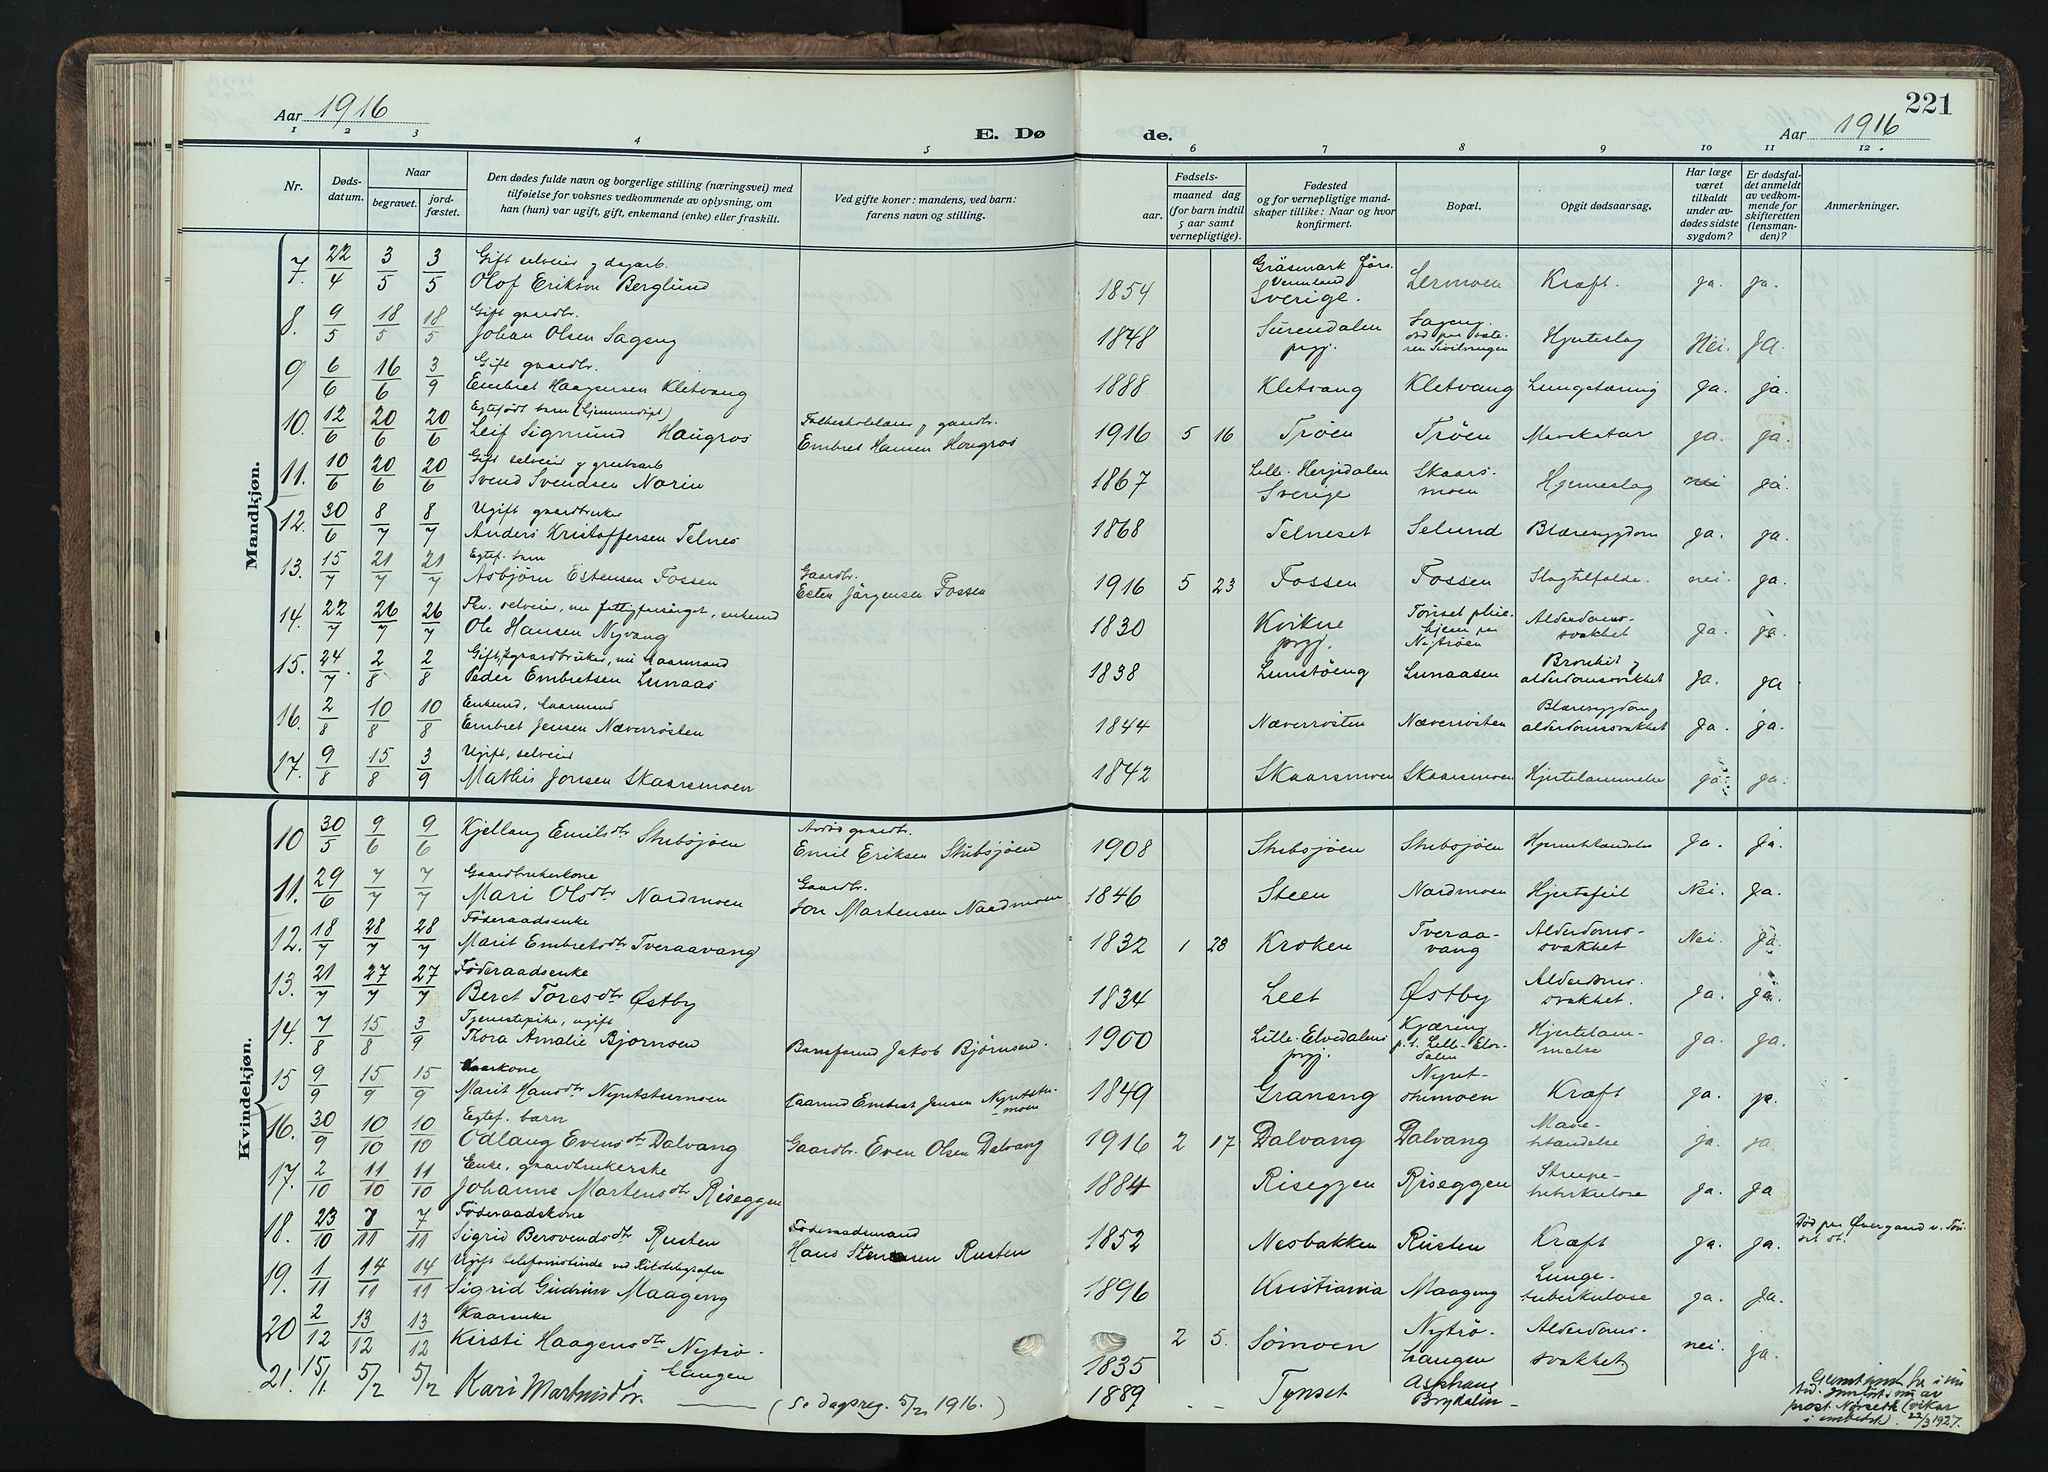 Aar 1916
E. Dø
de.
Aar 1916
221
1 2 3 4 5 6 7 8 9 10 11 12.
Nr.
Døds-
datum.
Naar
begravet.
jord-
fæstet.
Den dødes fulde navn og borgerlige stilling (næringsvei) med
tilføielse for voksnes vedkommende av oplysning, om
han (hun) var ugift, gift, enkemand (enke) eller fraskilt.
Ved gifte koner: mandens, ved barn:
farens navn og stilling.
Fødsels-
aar.
maaned dag
(for barn indtil
5 aar samt
vernepligtige).
Fødested
og for vernepligtige mand-
skaper tillike: Naar og hvor
konfirmert.
Bopæl.
Opgit dødsaarsag.
Har læge
været
tilkaldt
under av-
dødes sidste
sygdom?
Er dødsfal-
det anmeldt
av vedkom-
mende for
skifteretten
(lensman-
den)?
Anmerkninger.
Mandkjøn.
7. 22/4 3/5 3/5 Gift selveier og dagarb.
Olof Erikson Berglund 1854 Gräsmark förs. Vermland Sverige. Lermoen Kræft. ja. ja.
8. 9/5 18/5 18/5 Gift gaardbr.
Johan Olsen Sageng 1848 Surendalen prgj. Sageng. Hjerteslag Nei. Ja.
9 6/6 16/6 3/9 Gift gaardbr.
Embret Haagensen Kletvang 1888 Kletvang Kletvang Lungetæring Ja. ja.
10. 12/6 20/6 20/6 Egtefødt barn (hjemmedøpt)
Leif Sigmund Haugros Folkeskolelærer og gaardbr.
Embret Hansen Haugros 1916 5 16 Trøen Trøen Mavekatar ja. ja.
11. 10/6 20/6 20/6 Gift selveier og grubearb
Svend Svendsen Norin 1867 Lille Herjedalen Sverige Skaars-
moen Hjerneslag nei ja.
12. 30/6 8/7 8/7 Ugift gaardbruker
Anders Kristoffersen Telnes 1868 Telneset Selund Blæresygdom ja. ja.
13. 15/7 21/7 21/7 Egtef. barn
Asbjørn Estensen Fossen Gaardbr.
Esten Jörgensen Fossen 1916 5 23 Fossen Fossen Slagtilfælde. nei. ja.
14. 22/7 26/7 26/7 Fhv. selveier, nu fattigforsørget, enkemd
Ole Hansen Nyvang 1830 Kvikne prgj. Tønset pleie-
hjem paa
Nytrøen Alderdoms-
svakhet ja. ja.
15. 24/7 2/8 2/8 Gift, gaardbruker, nu kaarmand
Peder Embretsen Lunaas 1838 Lunstøeng Lunaasen Bronkit og
alderdomssvakhet ja. ja
16. 2/8 10/8 10/8 Enkemd, kaarmand
Embret Jensen Næverrøsten 1844 Næverrösten Næverrösten Blæresygdom,
alderdomssvakhet Ja. ja.
17. 9/8 15/8 3/9 Ugift, selveier
Mathis Jonsen Skaarsmoen 1842 Skaarsmoen Skaarsmoen Hjertelammelse ja. ja.
Kvindekjøn.
10 30/5 9/6 9/6 Kjellaug Emilsdtr Stubsjøen Avdød gaardbr.
Emil Eriksen Stubsjøen 1908 Stubsjøen Stubsjøen Ja. ja.
11. 29/6 7/7 7/7 Gaardbrukerkone
Mari Olsdtr Nordmoen Gaardbr.
Jon Martensen Nordmoen 1846 Steen Nordmoen Hjertefeil Nei. Ja.
12. 18/7 28/7 28/7 Føderaadsenke
Marit Embretsdtr Tveraavang 1832 1 28 Kroken Tveraa-
vang Alderdoms-
svakhet Nei. Ja.
13. 21/7 27/7 27/7 Føderaadsenke
Beret Toresdtr Østby 1834 Leet Østby Alderdoms-
svakhet. ja. ja.
14. 7/8 15/8 3/9 Tjenestepike, ugift
Thora Amalie Bjørnsen Baneformd Jakob Bjørnsen. 1900 Lille-Elvedalens
prgj. Kjæring
p.t. Lille-Elve-
dalen Hjertelam-
melse ja. ja.
15 9/9 15/9 15/9 Kaarkone
Marit Hansdtr Nyutstumoen Kaarmd Embret Jensen Nyutstu-
moen 1849 Graneng Nyut-
stumoen Kræft ja. ja.
16. 30/9 10/10 10/10 Egtef. barn
Odlaug Evensdtr Dalvang Gaardbr. Even Olsen Dalvang 1916 2 17 Dalvang Dalvang ja. ja
17. 2/10 11/10 11/10 Enke, gaardbrukerske
Johanne Martensdtr Riseggen 1884 Riseggen Riseggen Strupe-
tuberkulose ja. ja
18. 23/10 7/11 7/11 Føderaadskone
Sigrid Berovendsdtr Rusten Føderaadsmand
Hans Rusten 1852 Nesbakken Rusten Kræft ja. ja. Død paa Øvergaard
19. 1/11 14/11 14/11 Ugift telefonistinde ved Rikstelegrafen
Sigrid Gudrun Maageng 1896 Kristiania Maageng Lunge-
tuberkulose ja. ja.
20 2/12 13/12 13/12 Kaarenke
Kirsti Haagensdtr Nytrø-
haugen 1835 2 5. Sømoen Nytrö-
haugen Alderdoms-
svakhet nei. ja.
21. 15/1. 5/2 5/2 Kari Martinsdtr. (se dagsreg. 5/2 1916.) 1889 Tynset Brydalen prost Norseth (vikar
i embedet). 22/3 1927.